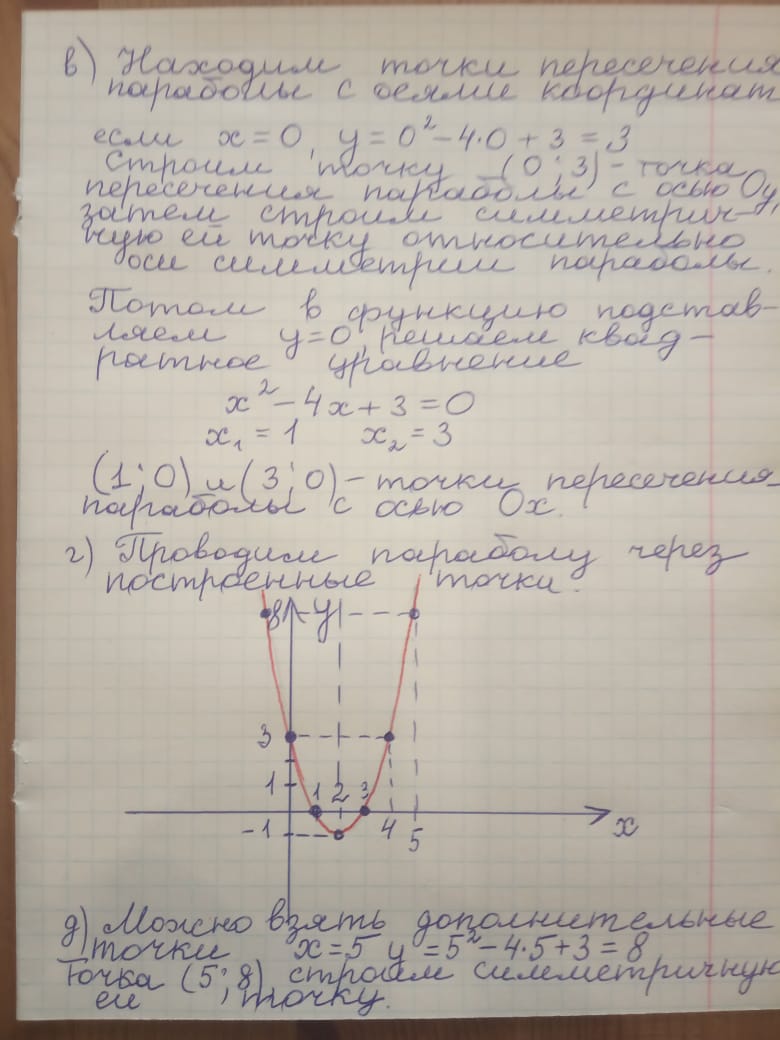 в) Находим точки пересечения
параболы с осями координат
если x = 0, y = 0² − 4·0 + 3 = 3
Строим точку (0; 3) - точка
пересечения параболы с осью Oy,
затем строим симметрич-
ную ей точку относительно
оси симметрии параболы.
Потом в функцию подстав-
ляем y=0, решаем квад-
ратное уравнение
x² − 4x + 3 = 0
x₁ = 1 x₂ = 3
(1; 0) и (3; 0) - точки пересечения
параболы с осью Ox.
г) Проводим параболу через
построенные точки.
8 y
3
1 1 2 3
-1 4 5 x
д) Можно взять дополнительные
точки x = 5 y = 5² − 4·5 + 3 = 8
Точка (5; 8) строим симметричную
ей точку.